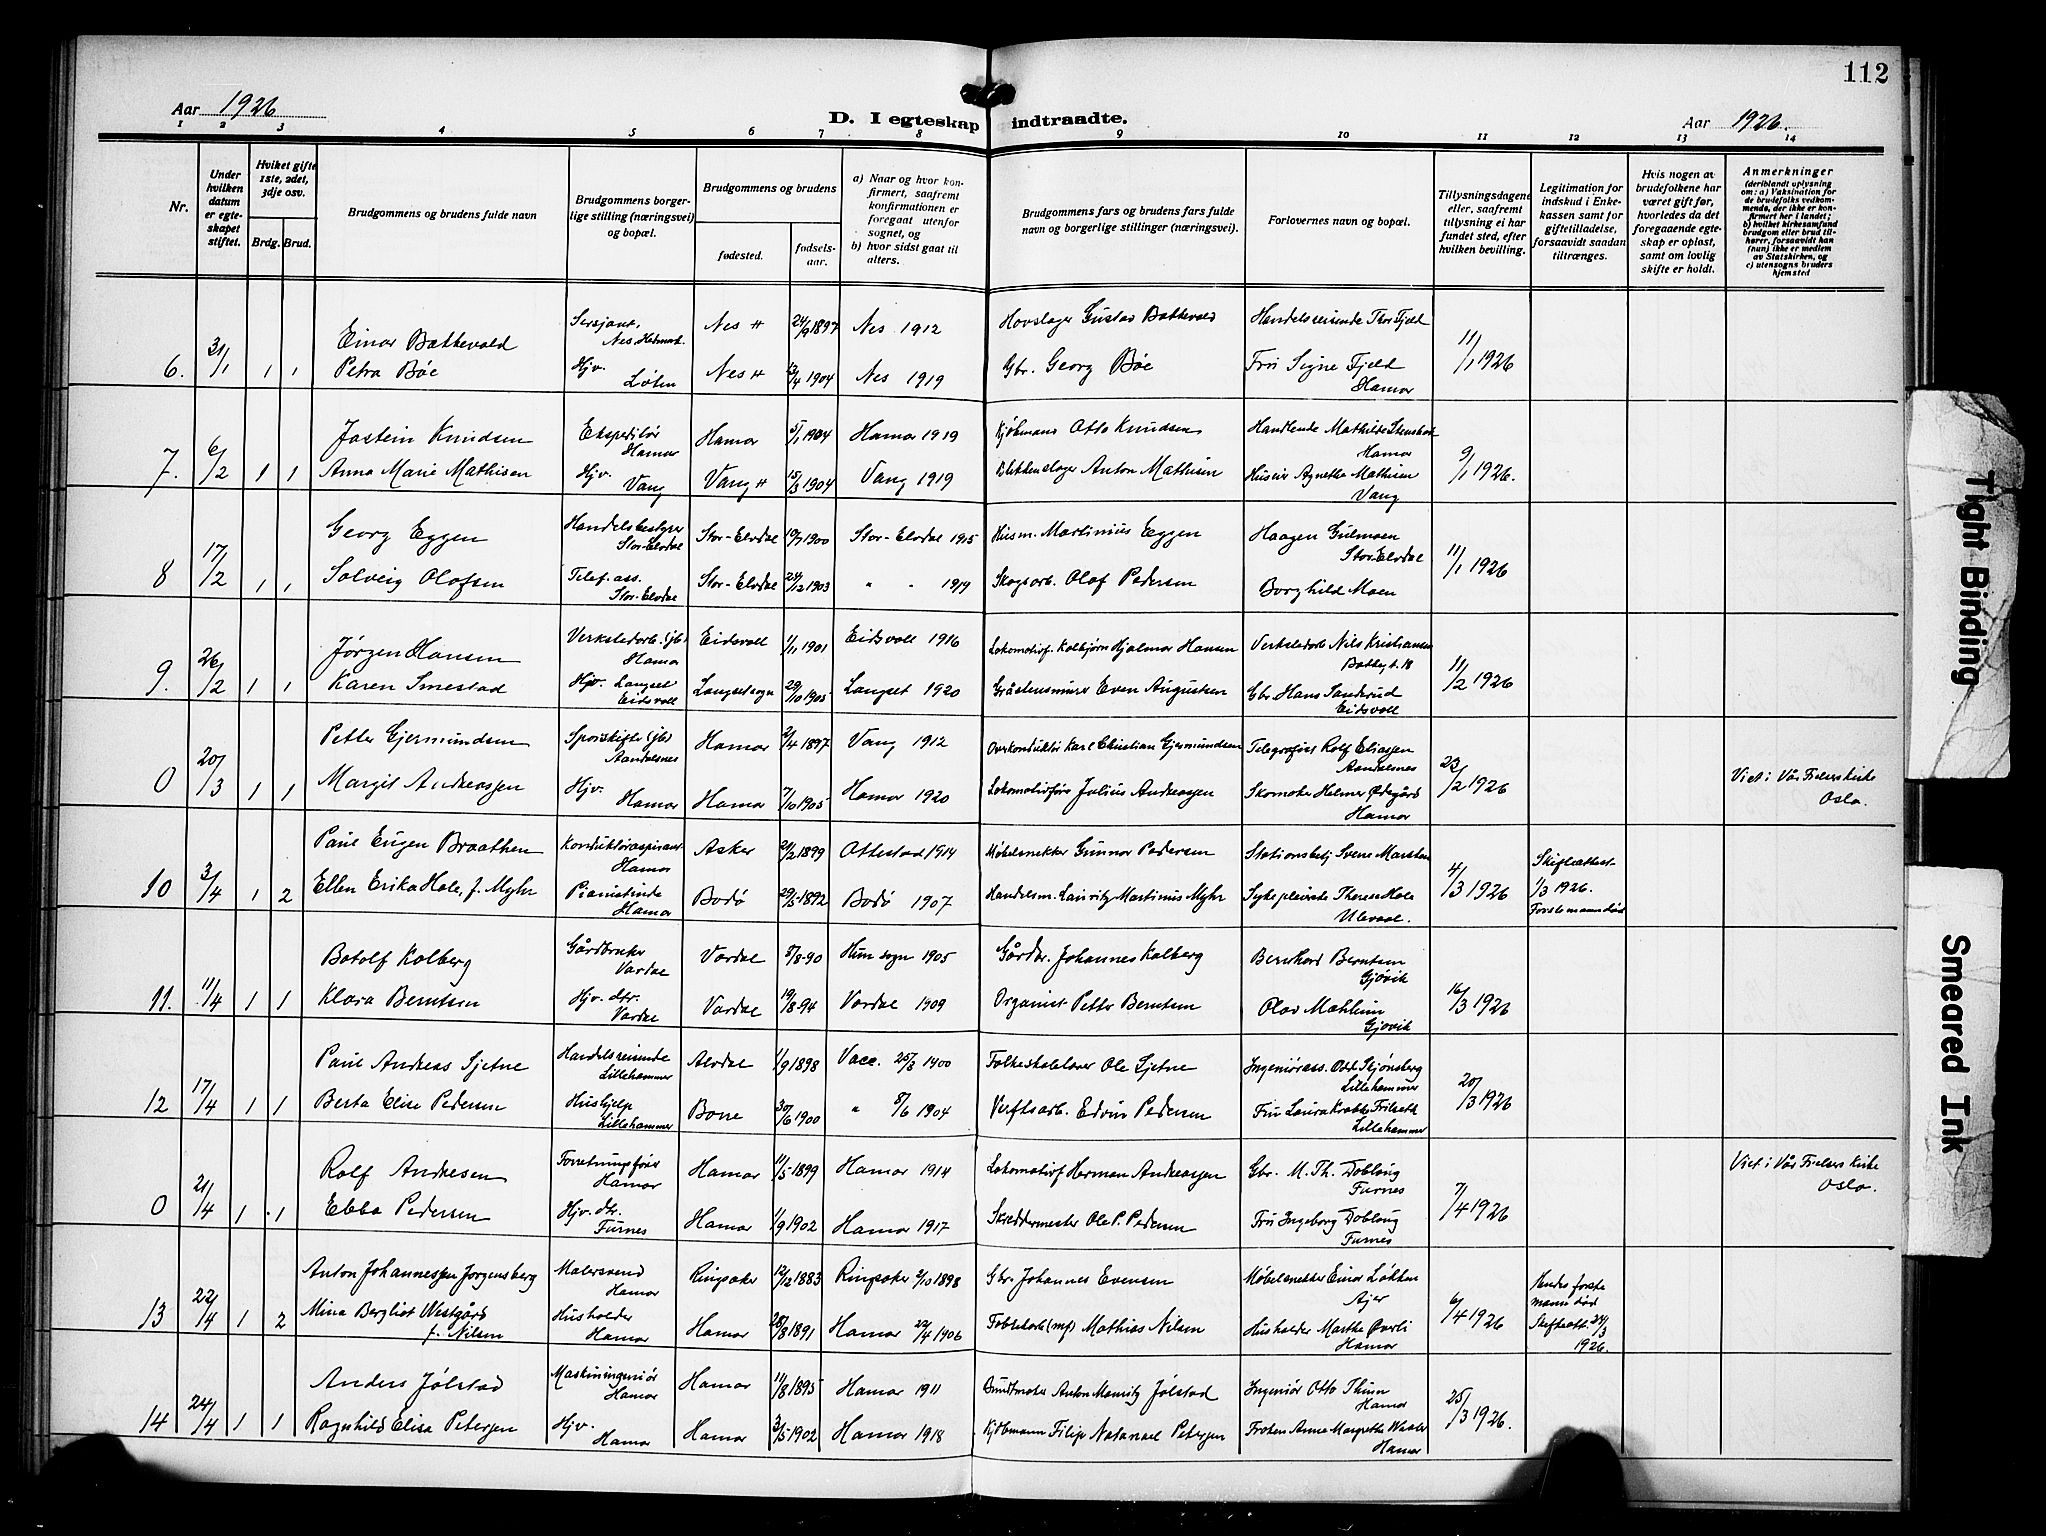 112
Aar 1926
D. I egteskap indtraadte.
Aar 1926.
1 2 3 4 5 6 7 8 9 10 11 12 13 14
Nr.
Under hvilken datum er egteskapet stiftet.
Hvilket gifte 1ste, 2det, 3dje osv.
Brdg. Brud.
Brudgommens og brudens fulde navn
Brudgommens borgerlige stilling (næringsvei) og bopæl.
Brudgommens og brudens
fødested.
fødselsaar.
a) Naar og hvor konfirmert, saafremt konfirmationen er foregaat utenfor sognet, og
b) hvor sidst gaat til alters.
Brudgommens fars og brudens fars fulde navn og borgerlige stillinger (næringsvei).
Forlovernes navn og bopæl.
Tillysningsdagene eller, saafremt tillysning ei har fundet sted, efter hvilken bevilling.
Legitimation for indskud i Enkekassen samt for giftetilladelse, forsaavidt saadan tiltrænges.
Hvis nogen av brudefolkene har været gift før, hvorledes da det foregaaende egteskap er opløst, samt om lovlig skifte er holdt.
Anmerkninger
(deriblandt oplysning om: a) Vaksination for de brudefolks vedkommende, der ikke er konfirmert her i landet; b) hvilket kirkesamfund brudgom eller brud tilhører, forsaavidt han (hun) ikke er medlem av Statskirken, og c) utensogns bruders hjemsted
6. 31/1 1 1
Einar Bættevold Sersjant, Nes, Hedmark Nes H 24/9 1897 Nes 1912 Hovslager Gustav Bættevold Handelsreisende Thor Fjeld
Petra Bøe Hjv. Løten Nes H 13/4 1904 Nes 1919 Gbr. Georg Bøe Fru Signe Fjeld Hamar 11/1 1926
7. 6/2 1 1
Jostein Knudsen Ekspeditør Hamar Hamar 5/1 1904 Hamar 1919 Kjøbmann Otto Knudsen Handlende Mathilde Stensbak Hamar
Anna Marie Mathisen Hjv. Vang Vang H 15/3 1904 Vang 1919 Blikkenslager Anton Mathisen Huseier Agnethe Mathisen Vang 9/1 1926.
8 17/2 1 1
Georg Eggen Handelsbestyrer Stor-Elvdal Stor-Elvdal 10/7 1900 Stor-Elvdal 1915 Husm. Martinius Eggen Haagen Gulmoen Stor-Elvdal
Solveig Olafsen Telef. ass. Stor-Elvdal Stor-Elvdal 24/12 1903 " " 1919 Skogsarb. Olaf Pedersen Borghild Moen 11/1 1926
9. 26/2 1 1
Jørgen Hansen Verkstedarb. (jb) Hamar Eidsvoll 1/11 1901 Eidsvoll 1916 Lokomotivf. Kolbjørn Hjalmar Hansen Verkstedarb. Nils Kristiansen
Karen Smestad Hjv. Langset Eidsvoll Langset sogn 29/10 1905 Langset 1920 Gråstensmurer Even Augustsen Gbr. Hans Sanderud Eidsvoll 11/2 1926
0 20/3 1 1
Petter Gjermundsen Sporskifte (jb) Aandalsnes Hamar 2/4 1897 Vang 1912 Overkonduktør Karl Christian Gjermundsen Telegrafass Rolf Eliassen Aandalsnes
Margit Andreassen Hjv. Hamar Hamar 7/10 1905 Hamar 1920 Lokomotivfører Julius Andreassen Skomaker Helmer Ødegård Hamar 23/2 1926 Viet i Vår Frelsers kirke Oslo.
10 3/4 1 2
Paul Eugen Braathen Konduktøraspirant Hamar Asker 21/2 1899 Ottestad 1914 Møbelsnekker Gunnar Pedersen Stationsbetj Svene Marstein
Ellen Erika Hole, f. Myhr Pianistinde Hamar Bodø 29/5 1892 Bodø 1907 Handelsm. Lauritz Martinus Myhr Sykepleierske Therese Hole Ulevaal. 4/3 1926 Skifteattest 1/3 1926. Forste mann død
11. 11/4 1 1
Botolf Kolberg Gårdbruker Vardal Vardal 5/8-90 Hun sogn 1905 Gårdbr. Johannes Kolberg Bernhard Berntsen Gjøvik
Klara Berntsen Hjv. dtr. Vardal Vardal 19/8-94 Vardal 1909 Organist Petter Berntsen Olav Mæhlum Gjøvik 16/3 1926
12 17/4 1 1
Paul Andreas Sjetne Handelsreisende Lillehammer Alvdal 1/9 1898 Vacc. 25/8 1900 Folkeskolelærer Ole Sjetne Ingeniørass. Odd Skjønsberg Lillehammer
Berta Elise Pedersen Hushjelp Lillehammer Borre 30/6 1900 " 8/6 1904 Verftsarb. Edvin Pedersen Fru Laura Krabbe Frilseth Lillehammer 20/3 1926
0 21/4 1 1
Rolf Andresen Forretningsfører Hamar Hamar 11/5 1899 Hamar 1914 Lokomotivf Herman Andreassen Gbr. M. Th. Dobloug Furnes
Ebba Pedersen Hjv. dtr. Furnes Hamar 1/9 1902 Hamar 1917 Skreddermester Ole P. Pedersen Fru Ingeborg Dobloug Furnes 7/4 1926 Viet i Vår Frelsers Kirke Oslo.
13 22/4 1 2
Anton Johannessen Jorgensberg Malersvend Hamar Ringsaker 12/12 1883 Ringsaker 2/10 1898 Gbr. Johannes Evensen Møbelsnekker Einar Løkken Ajer
Mina Bergliot Westgård f. Nilsen Husholder Hamar Hamar 28/8 1891 Hamar 22/4 1906 Fabrikarb (mf) Mathias Nilsen Husholder Marthe Øvrli Hamar 6/4 1926 Hendes forste mann død Skifteatt. 24/3 1926.
14 24/4 1 1
Anders Jølstad Maskiningeniør Hamar Hamar 11/8 1895 Hamar 1911 Buntmaker Anton Mauritz Jølstad Ingeniør Otto Thun Hamar
Ragnhild Elisa Petersen Hjv. Hamar Hamar 3/5 1902 Hamar 1918 Kjøbmann Filip Natanael Petersen Frøken Anna Margrethe Waaler Hamar 25/3 1926.
Tight Binding
Smeared Ink